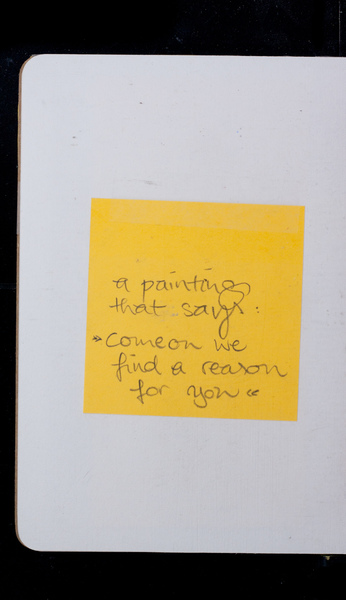 a painting
that says:
»Comeon we
find a reason
for you«